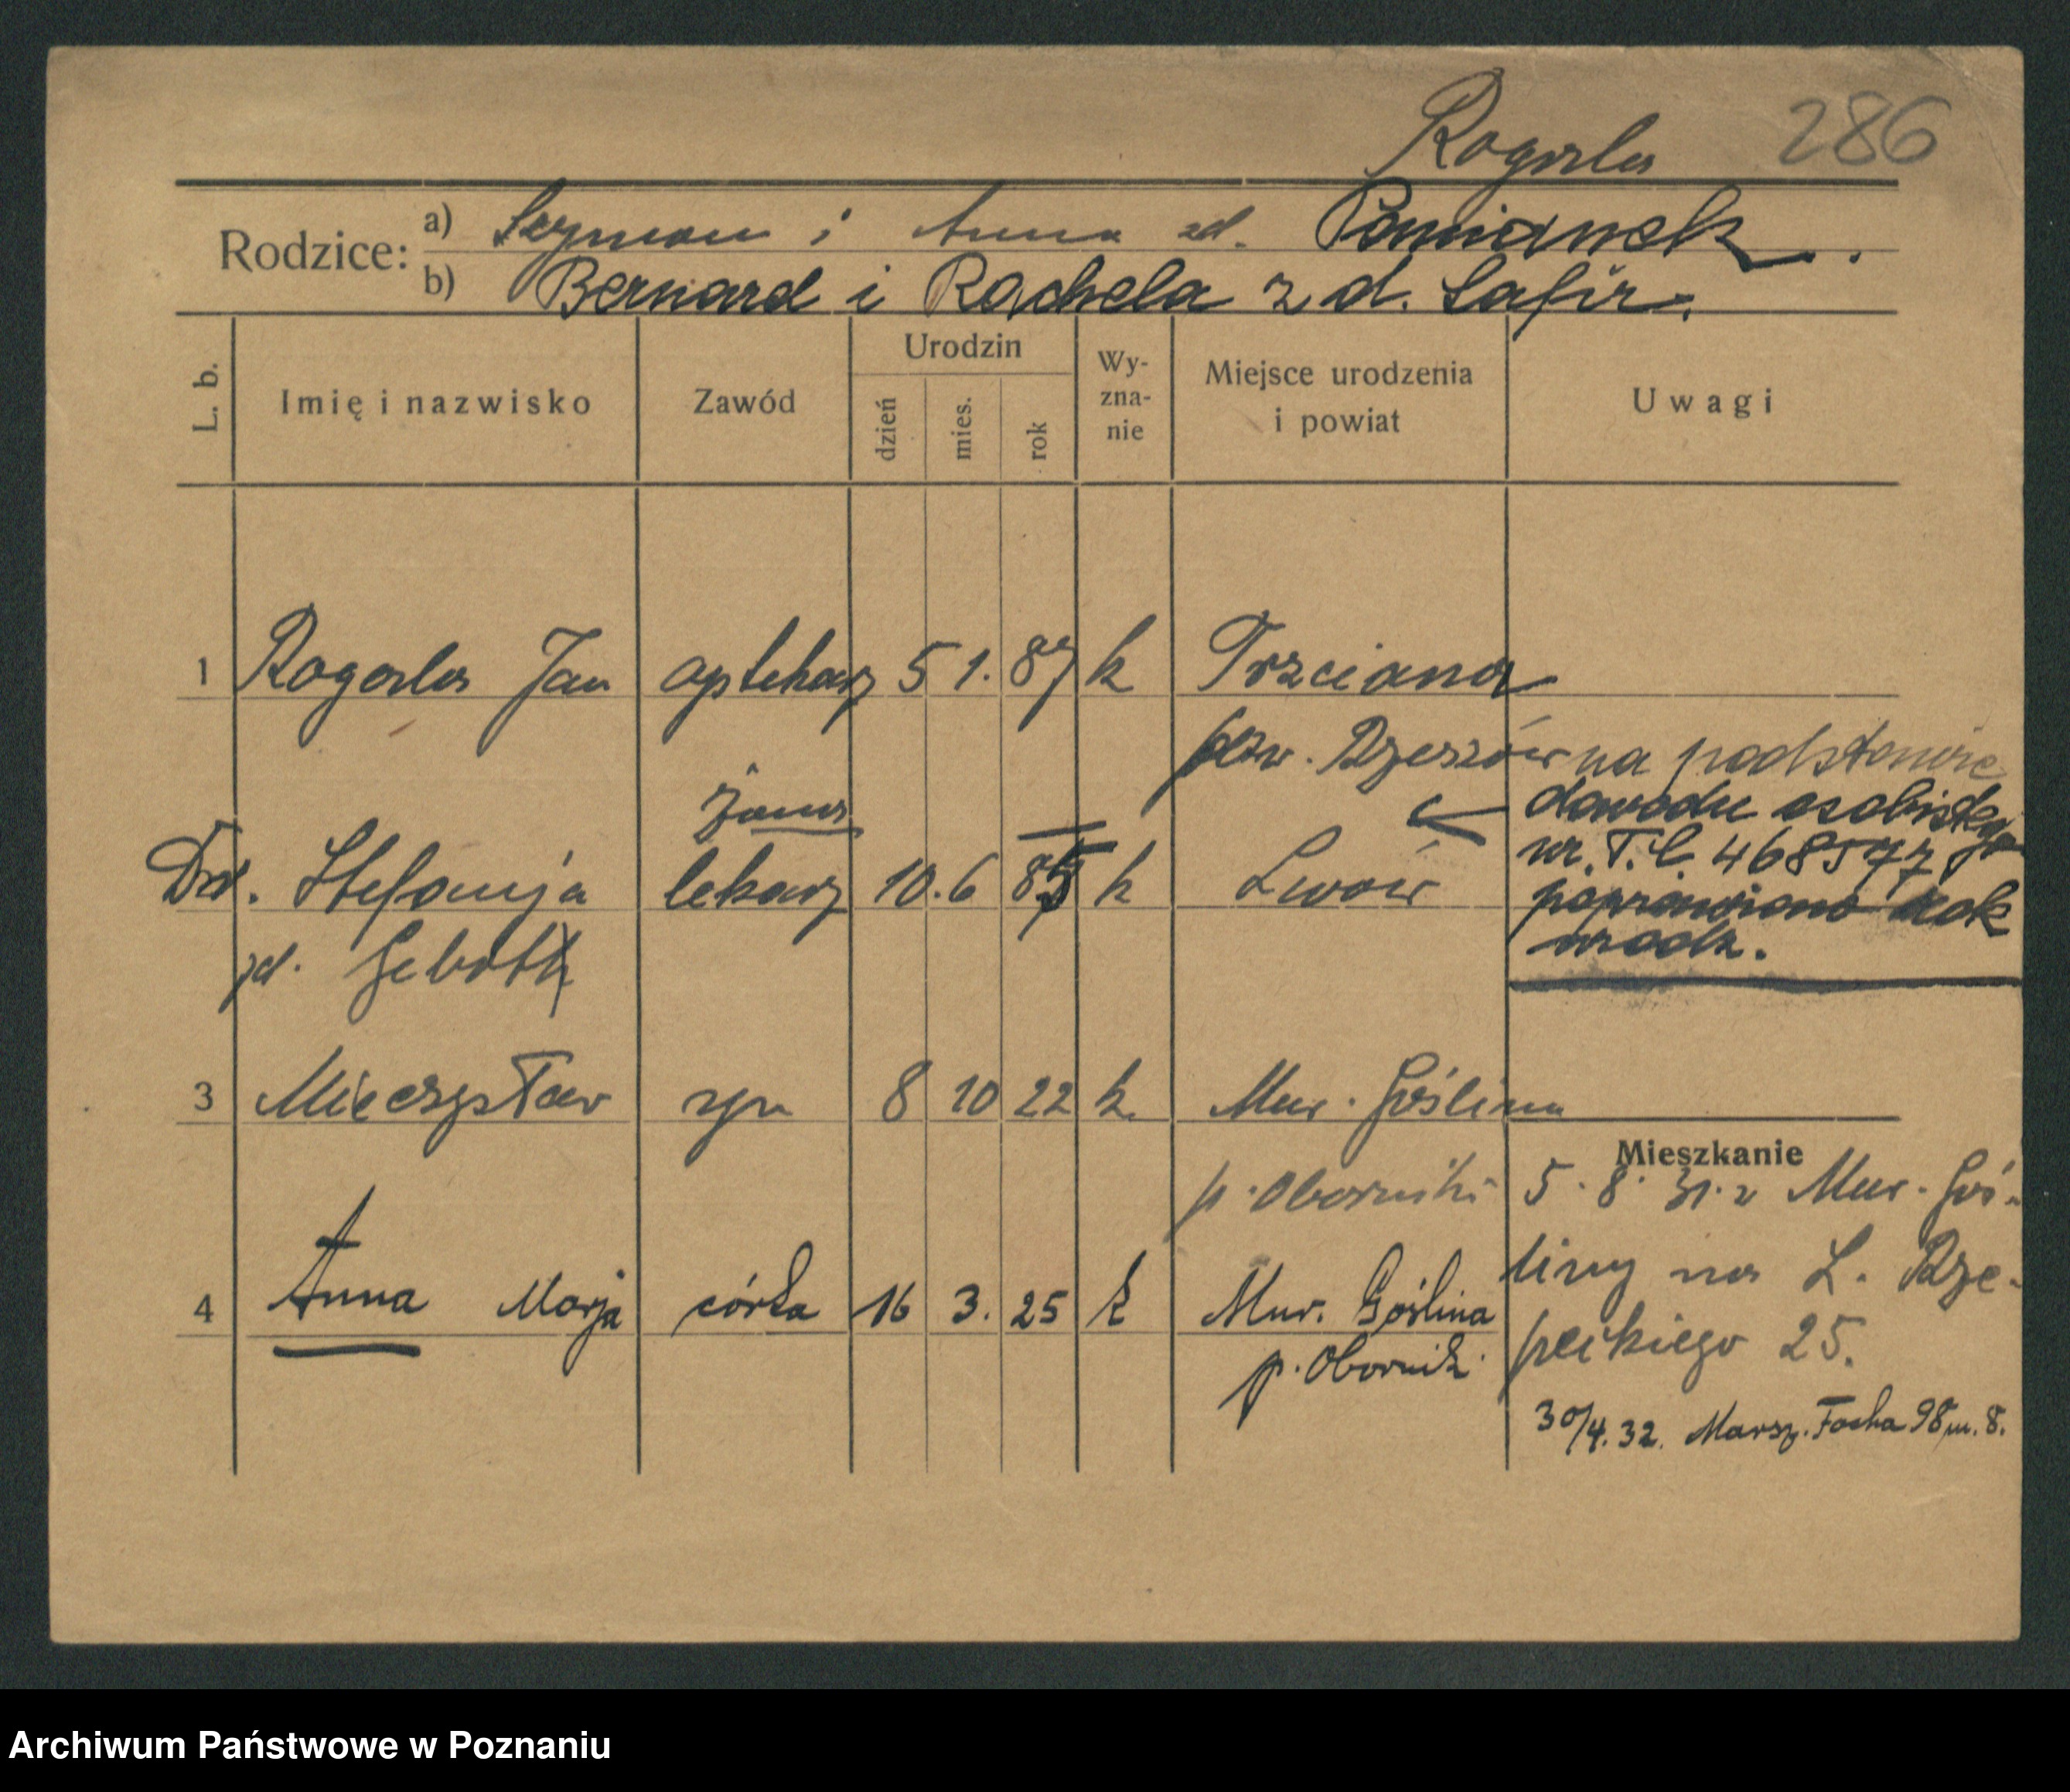 Rogosla 286
Rodzice: a) Szymon i Anna zd. Pomianek.
b) Bernard i Rachela z d. Safir.
L. b. Imię i nazwisko Zawód Urodzin Wy-zna-nie Miejsce urodzenia i powiat Uwagi
dzień mies. rok
1 Jan aptekarz 5 1. 87 k Trzciana
pow. Rzeszów
na podstawie
żona
dowodu osobistego
nr. T.C. 468547
Dr. Stefanja lekarz 10. 6 85 k Lwów
poprawiono rok
urodz.
zd.
3 Mieczysław syn 8 10 22 k. Mur. Goślina
p. Oborniki
Mieszkanie
5. 8. 31. z Mur. Goś-
liny na L. Rze-
peckiego 25.
4 Anna Marja córka 16 3. 25 k Mur. Goślina
p. Obornik
30/4. 32. Marsz. Focha 98 m. 8.
Archiwum Państwowe w Poznaniu